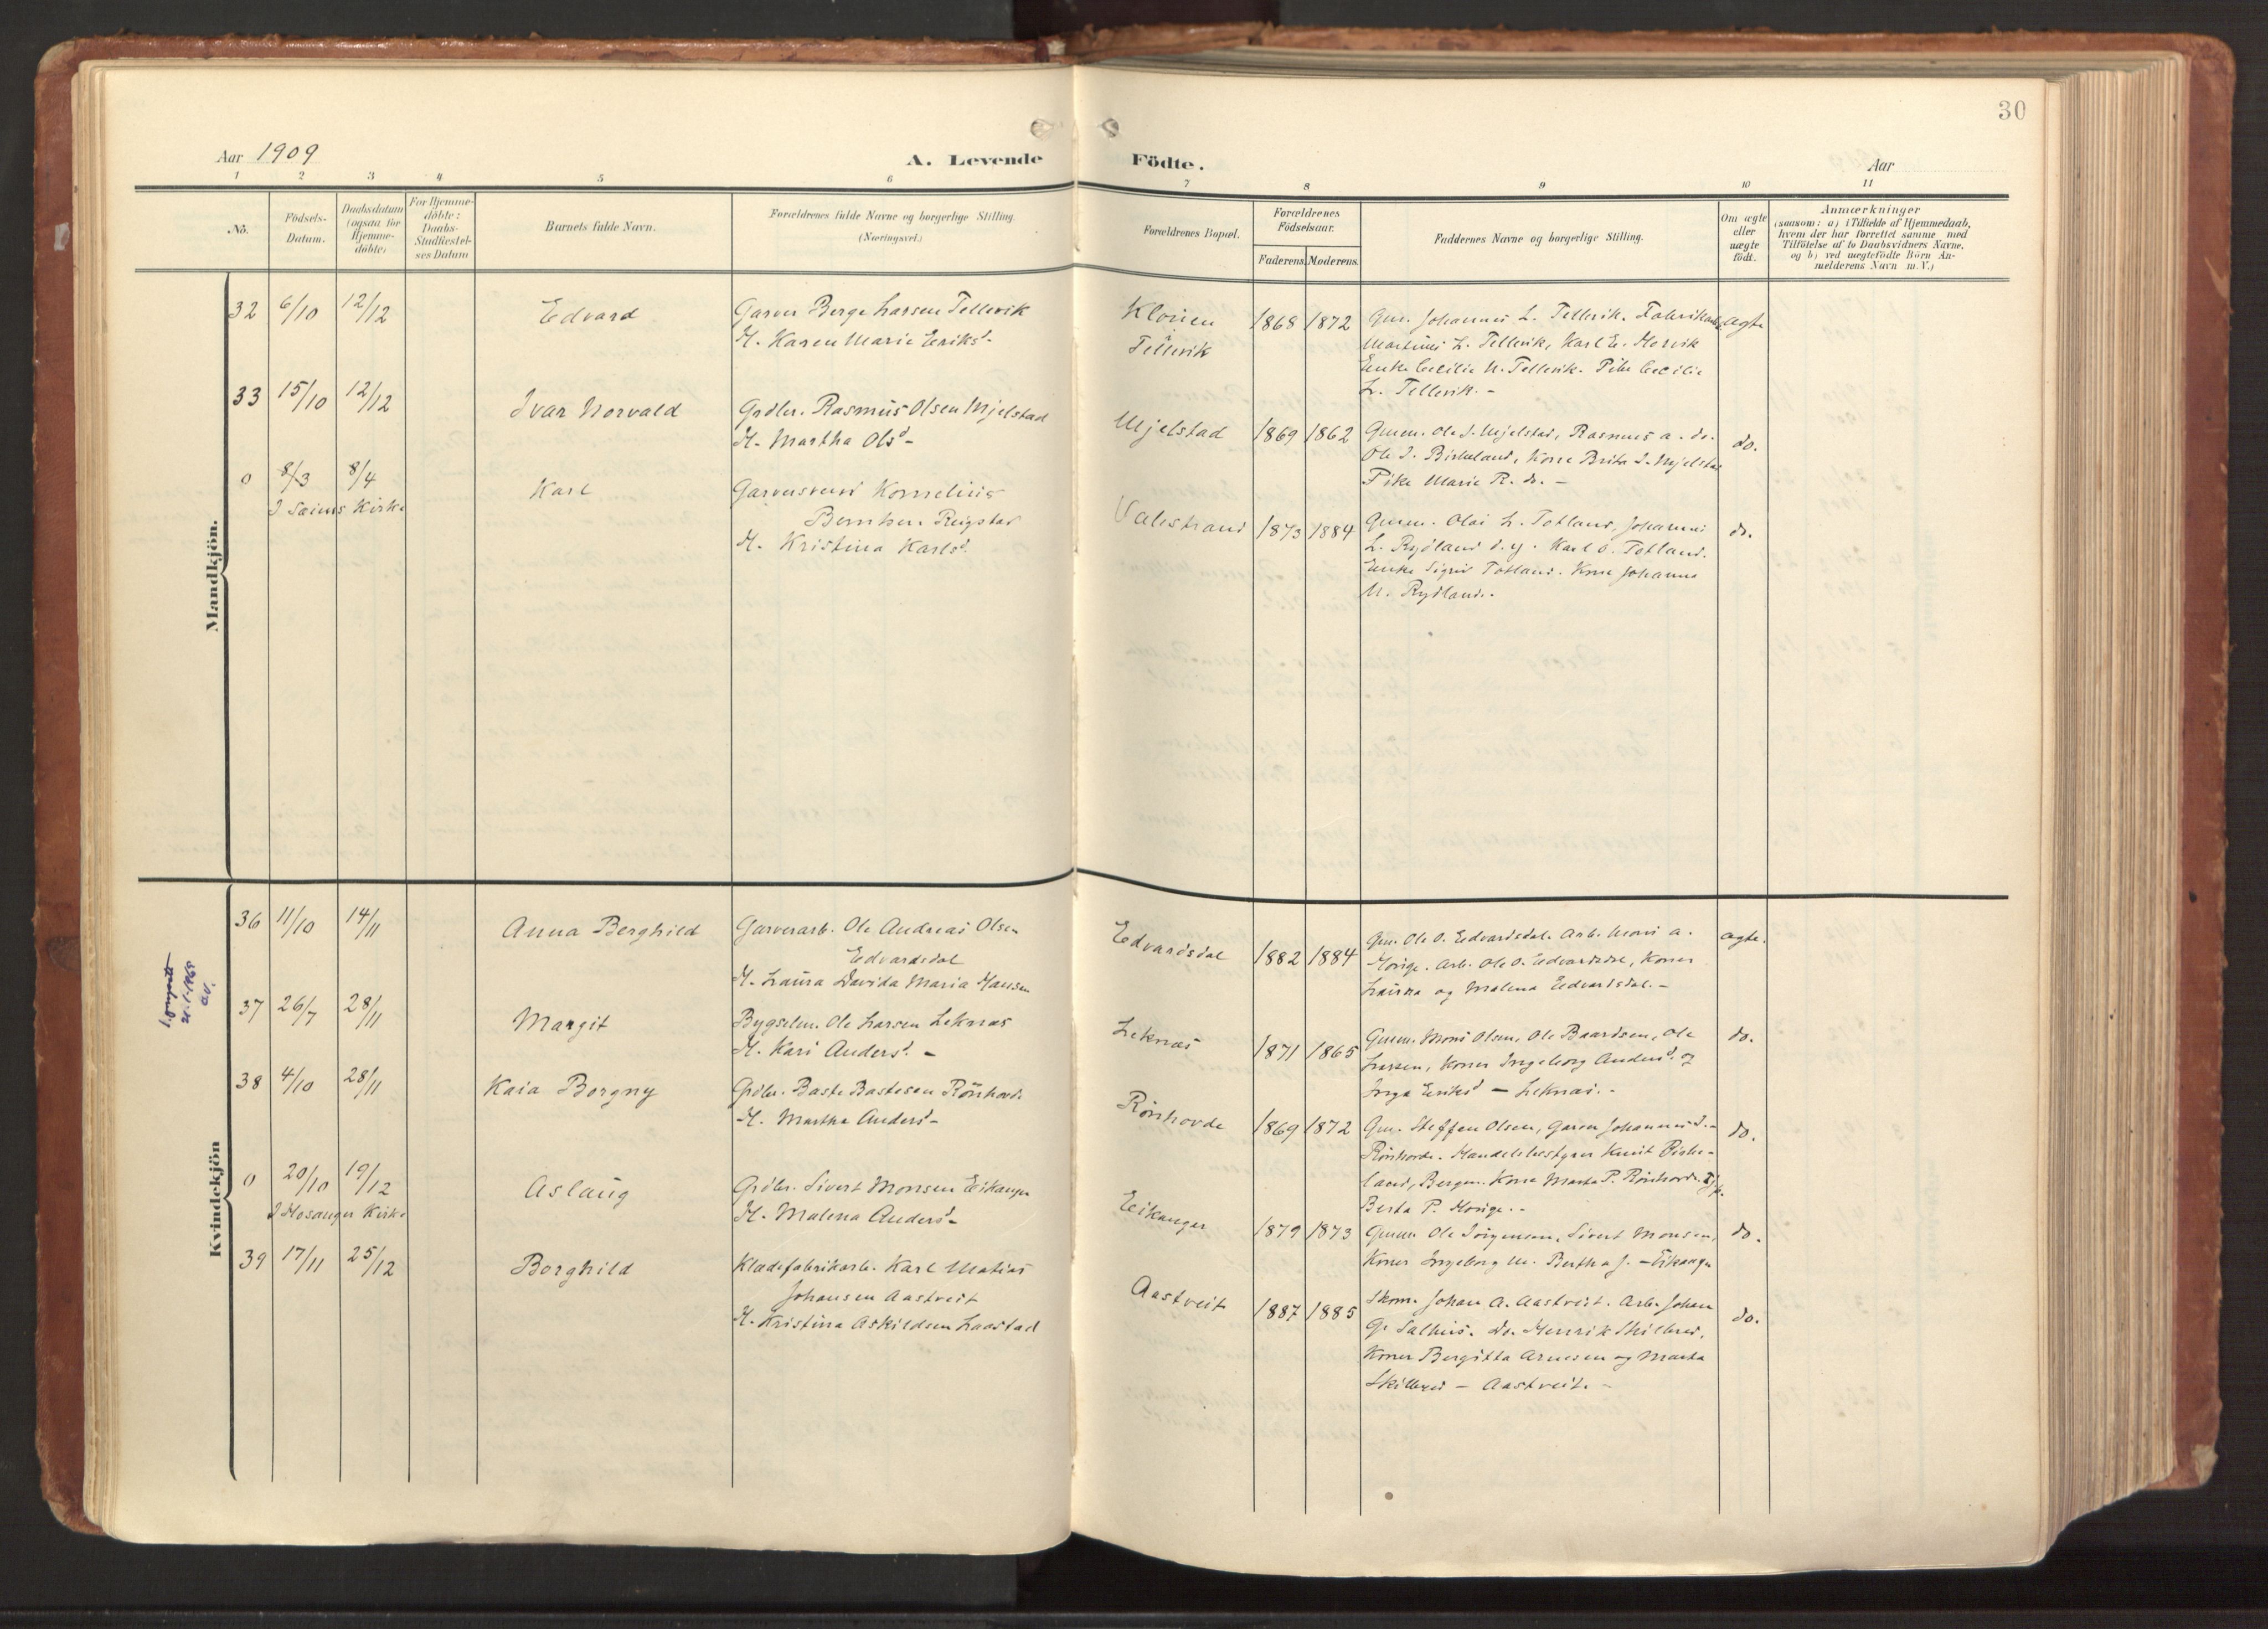 30
Aar 1909
A. Levende
Födte.
Aar
1 2 3 4 5 6 7 8 9 10 11
No.
Födsels-
Datum.
Daabsdatum
(ogsaa for
Hjemme-
döbte)
For Hjemme-
döbte:
Daabs-
Stadfæstel-
ses Datum
Barnets fulde Navn.
Forældrenes fulde Navne og borgerlige Stilling.
(Næringsvei.)
Forældrenes Bopæl.
Forældrenes
Födselsaar.
Faderens. Moderens.
Faddernes Navne og borgerlige Stilling.
Om ægte
eller
uægte
födt.
Anmærkninger
(saasom: a) i Tilfælde af Hjemmedaab,
hvem der har forrettet samme med
Tilföielse af to Daabsvidners Navne,
og b) ved uægtefödte Börn An-
melderens Navn m. V.)
Mandkjön.
32 6/10 12/12
Edvard
Garver Berge Larsen Tellevik
H. Karen Marie Eriksd.
Klouen
Tellevik
1868 1872
Gm. Johannes L. Tellevik. Fabrikarb.
Martines L. Tellevik, Karl E. Hervik
Enke Cecilie N. Tellevik. Pike Cecilie
L. Tellevik. -
ægte
33 15/10 12/12
Ivar Norvald
Grdbr. Rasmus Olsen Mjelstad
H. Martha Olsd -
Mjelstad
1869 1862
Gmm. Ole I. Mjelstad, Rasmus A. do.
Ole I. Birkeland, Kone Brita I. Mjelstad
Pike Marie R. do. -
do.
0 8/3 8/4
I Sæims Kirke
Karl
Garversvend Kornelius
Bernhsen Reigstad
H. Kristina Karlsd.
Valestrand
1873 1884
Gmm. Olai L. Totland, Johannes
L. Rydland d.y. Karl O. Totland.
Enke Sigrid Totland. Kone Johanna
N. Rydland.
do.
Kvindekjön
36 11/10 14/11
Anna Berghild
Garverarb. Ole Andreas Olsen
Edvardsdal
H. Laura Davida Maria Hansen
Edvardsdal
1882 1884
Gm. Ole O. Edvardsdal. Arb. Mons A.
Horige. Arb. Ole O. Edvardsdal, Koner
Laura og Malena Edvardsdal. -
ægte.
21-1-1965
37 26/7 28/11
Margit
Bygselm. Ole Larsen Leknæs
H. Kari Andersd. -
Leknæs
1871 1865
Gmm. Mons Olsen, Ole Baardsen, Ole
Larsen, Koner Ingeborg Andersd. og
Inga Eriksd - Leknæs. -
do.
38 4/10 28/11
Kaia Borgny
Grdbr. Baste Bastesen Rönhovde
H. Martha Andersd -
Rönhovde
1869 1872
Gm. Steffen Olsen, Garver Johannes I. -
Rönhovde. Handelsbestyrer Knut Birke-
land, Bergen. Kone Marta P. Rönhovde.
Berta P. Horige. -
do.
0 20/10 19/12
I Hosanger Kirke
Aslaug
Grdbr. Sivert Monsen Eikanger
H. Malena Andersd -
Eikanger
1879 1873
Gmm Ole Jörgensen, Sivert Monsen,
Koner Ingeborg M. Bertha J. - Eikanger
do.
39 17/11 25/12
Borghild
Klædefabrikarb. Karl Matias
Johansen Aastveit
H. Kristina Askildsen Laastad
Aastveit
1887 1885
Skom. Johan A. Aastveit. Arb. Johan
G. Salhus. Do. Henrik Skilbred,
Koner Bergitta Arnesen og Marta
Skilbred - Aastveit. -
do.